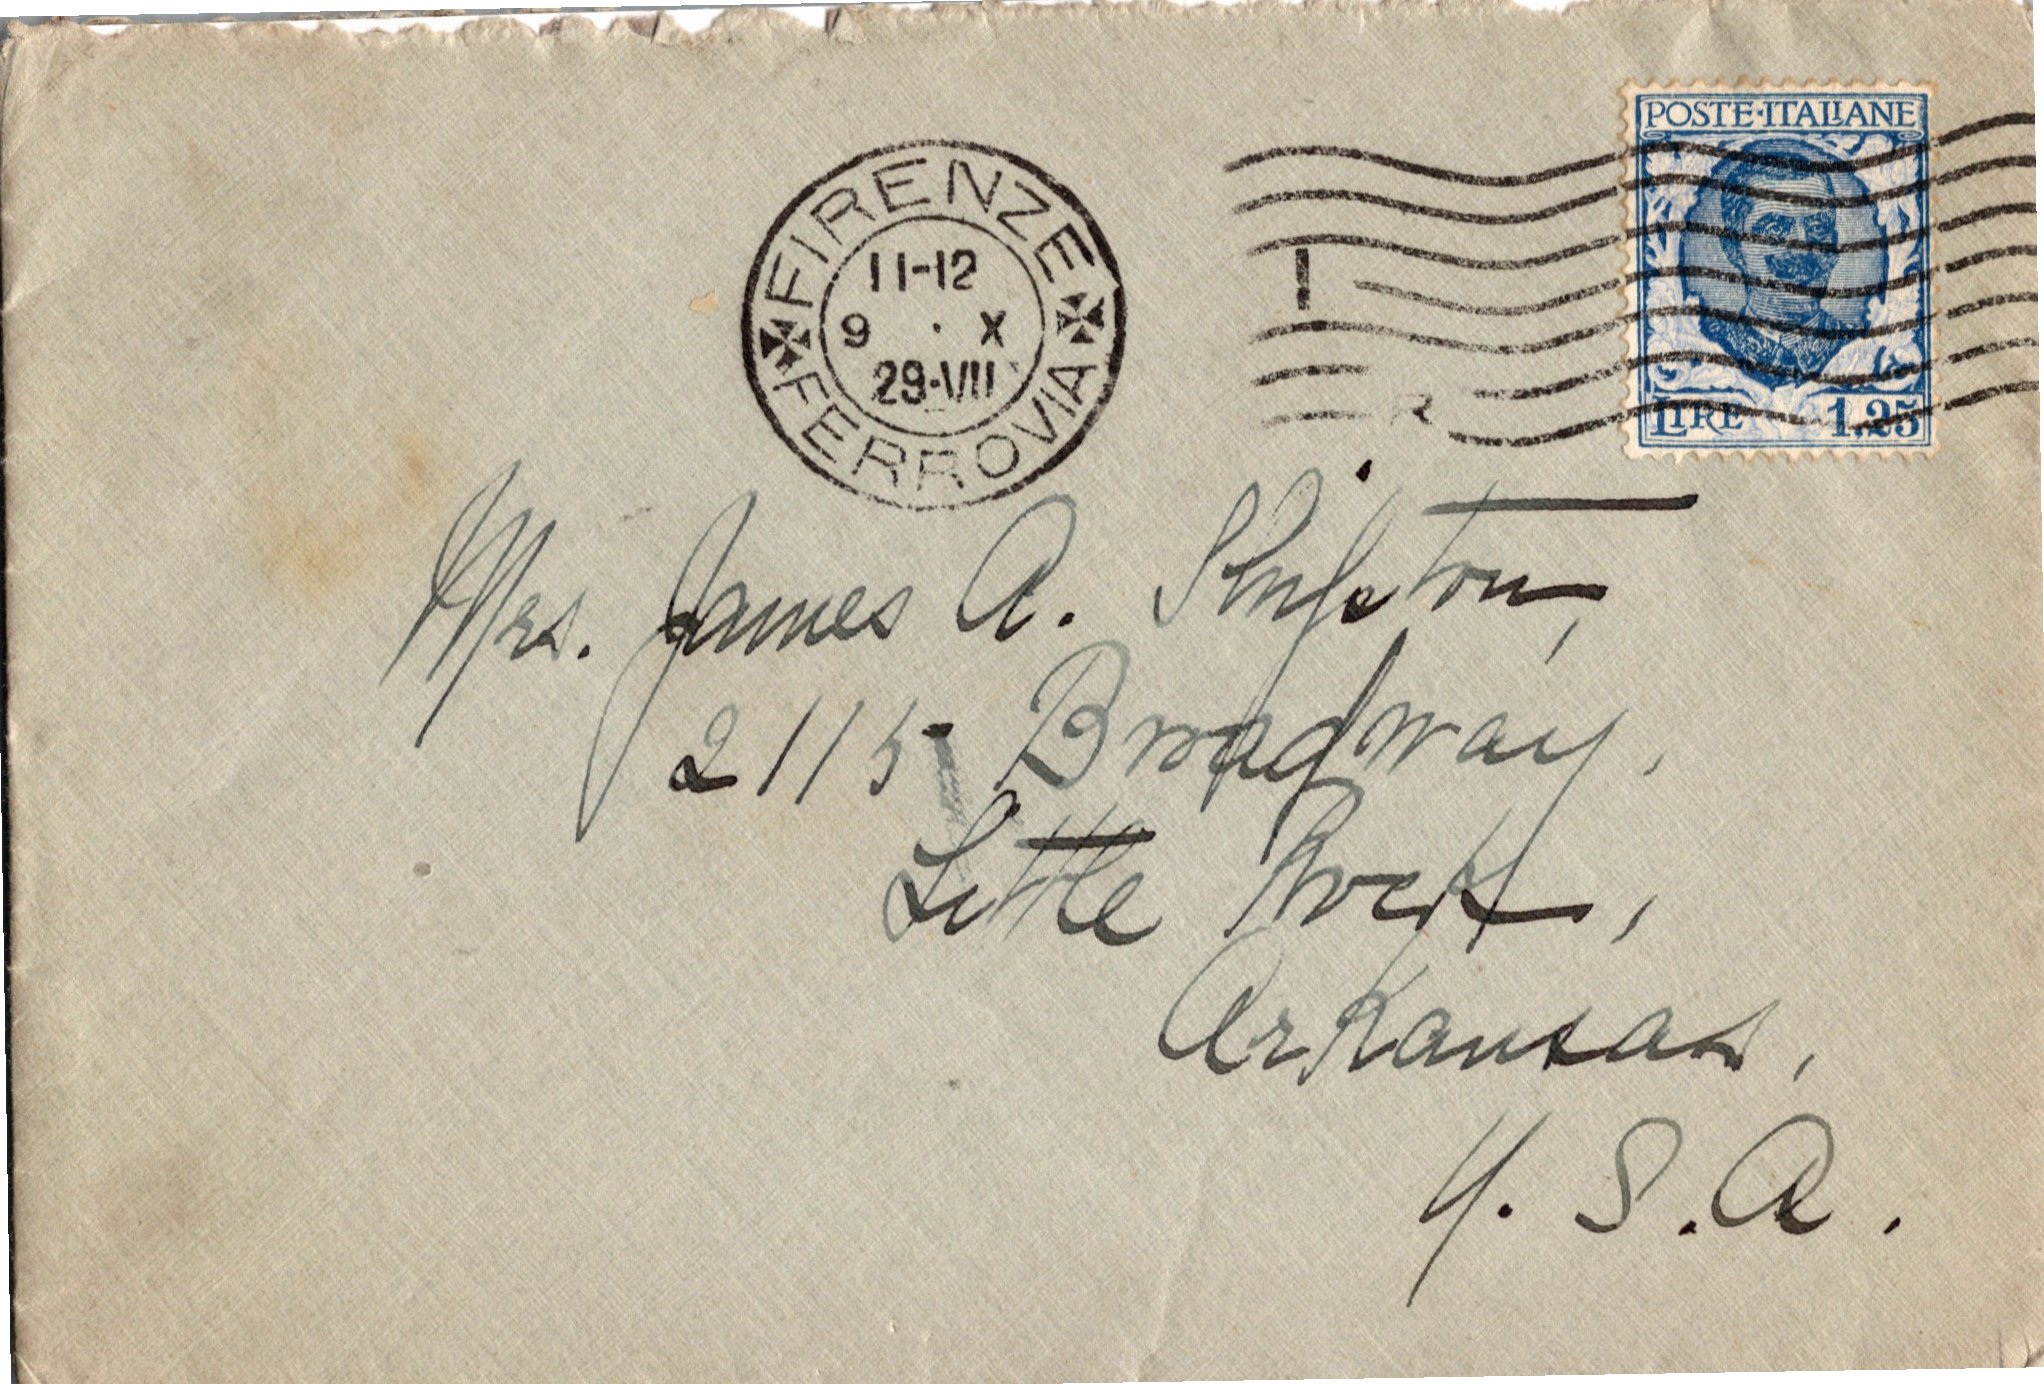 POSTE·ITALIANE
LIRE 1.25
FIRENZE
11-12
9 · X
29·VII
FERROVIA
I
R
Mrs. James A.
2115 Broadway,
Little Rock,
Arkansas,
U. S. A.